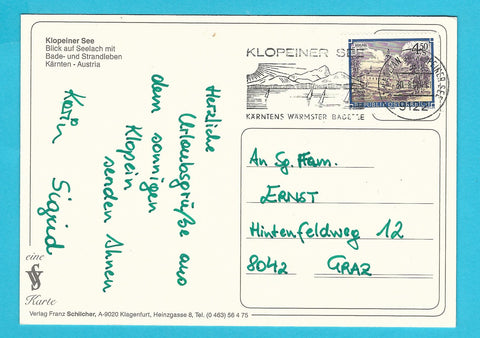 Klopeiner See
Blick auf Seelach mit
Bade- und Strandleben
Kärnten - Austria
Herzliche
Urlaubsgrüße aus
dem sonnigen
Klopein
senden Ihnen
Karin Sigrid
KLOPEINER SEE
KÄRNTENS WÄRMSTER BADESEE
4.50
REPUBLIK ÖSTERREICH
An Sg. Fam.
ERNST
Hintenfeldweg 12
8042 GRAZ
eine
Karte
Verlag Franz Schilcher, A-9020 Klagenfurt, Heinzgasse 8, Tel. (0 463) 56 4 75